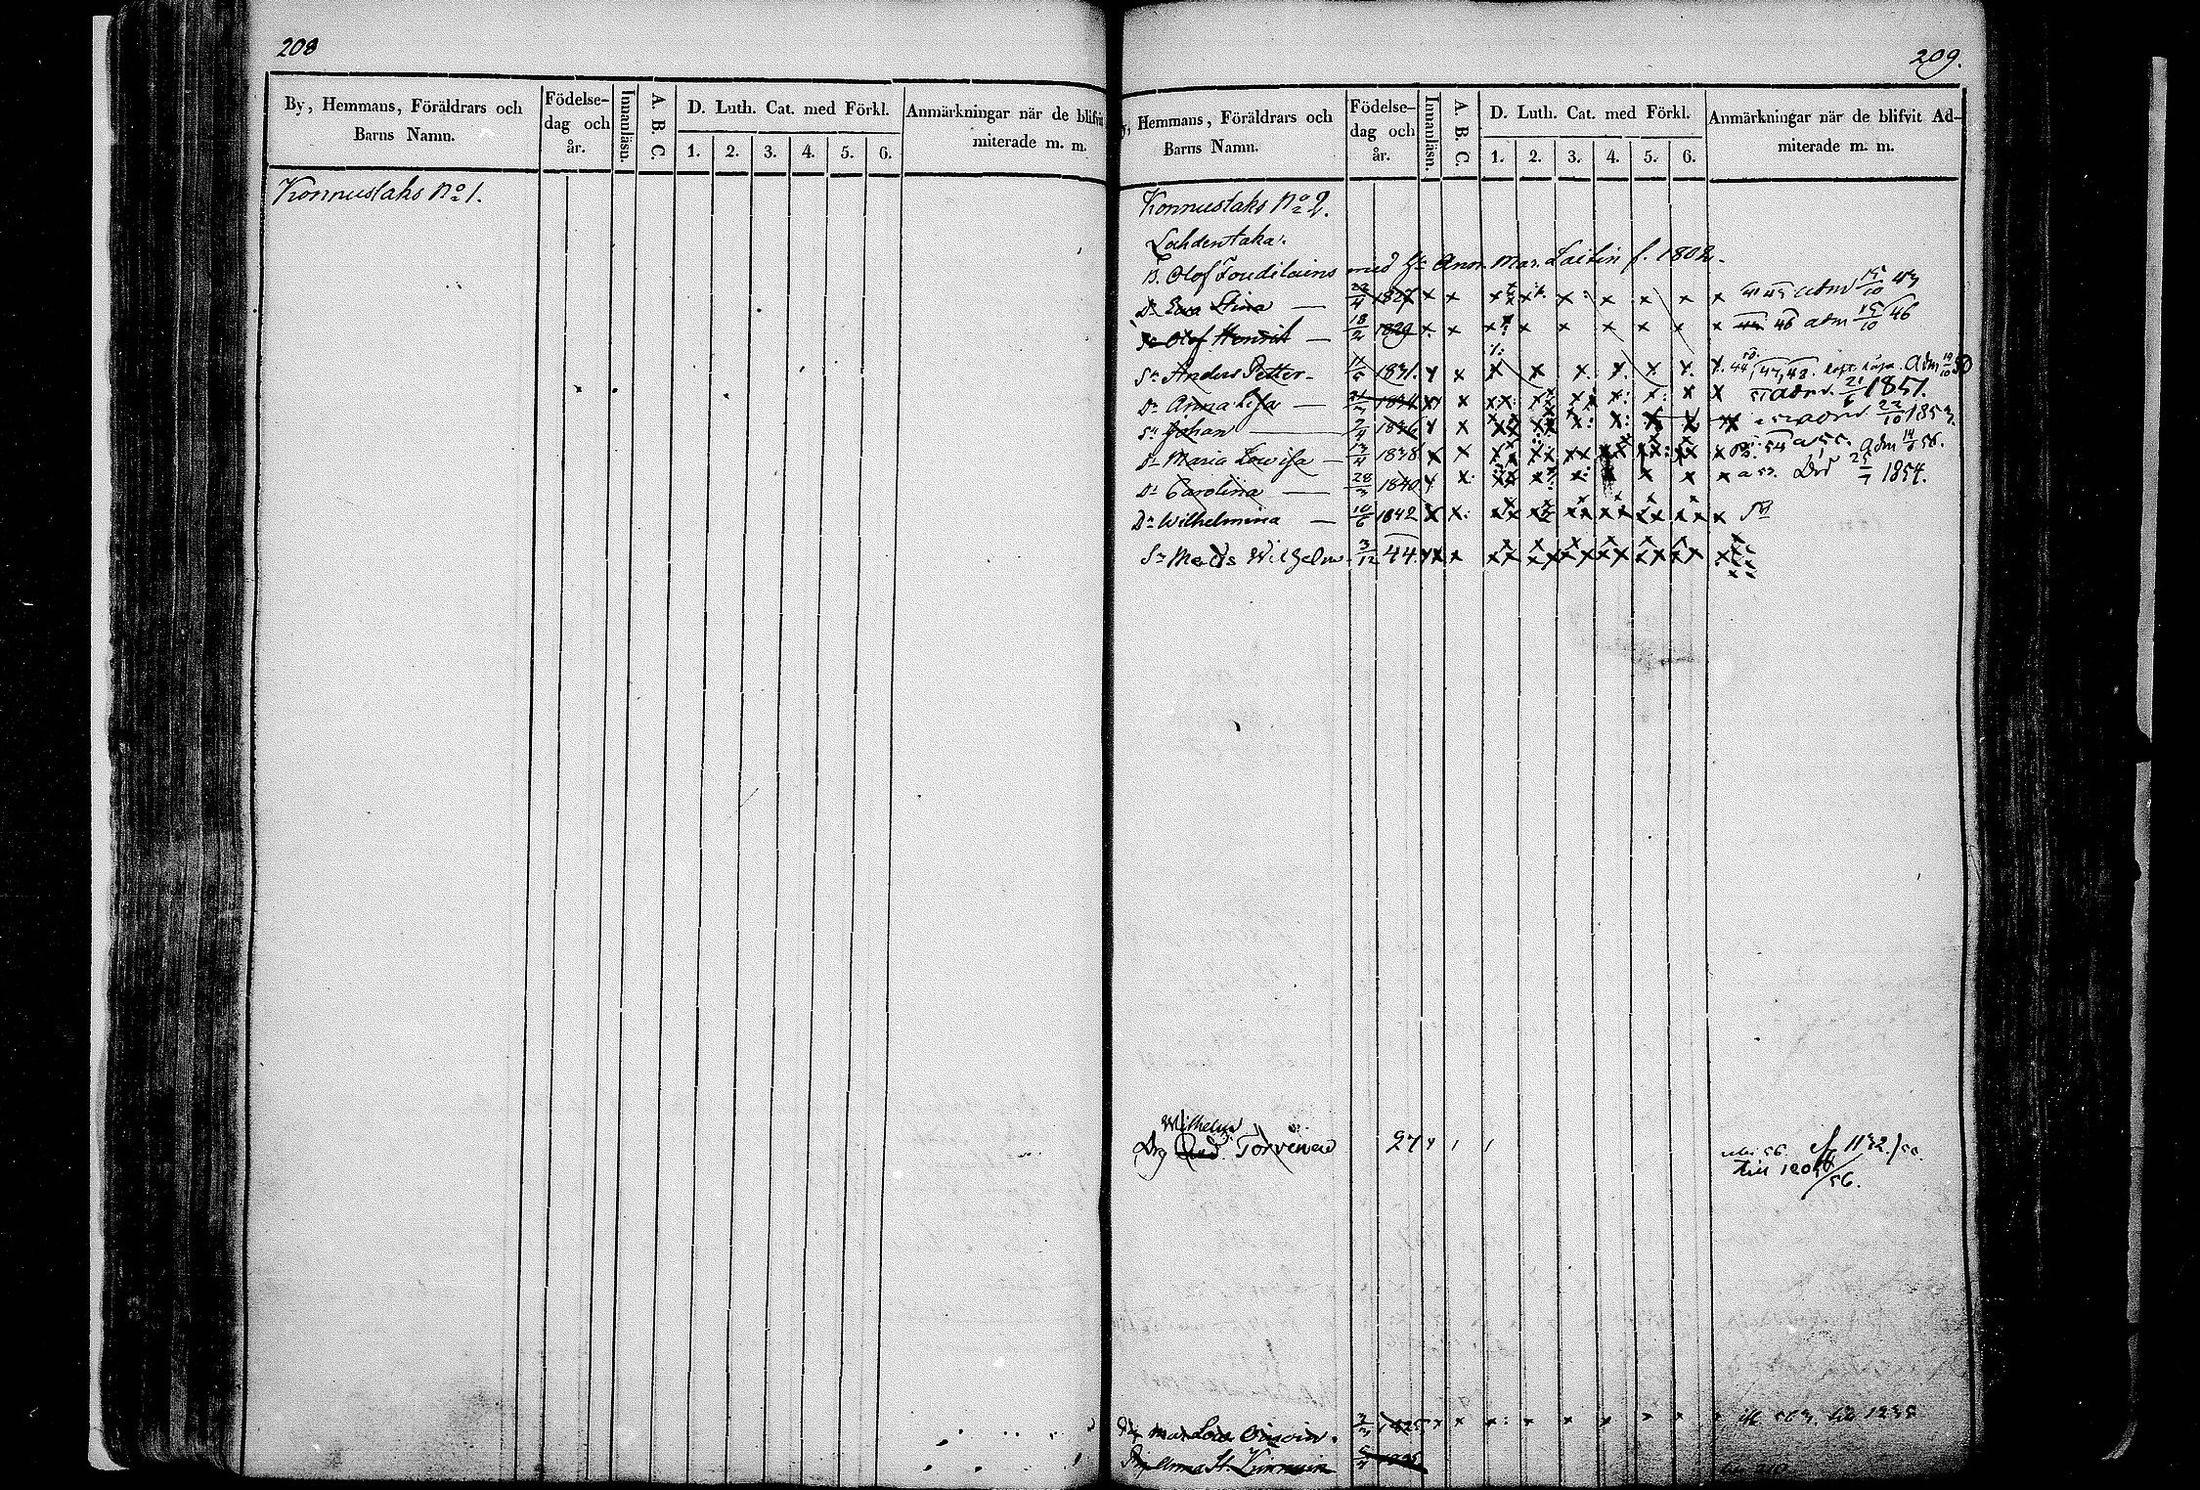 208
By, Hemmans, Föräldrars och Barns Namn.
Födelse-dag och år.
Innanläsn.
A. B. C.
D. Luth. Cat. med Förkl.
1. 2. 3. 4. 5. 6.
Anmärkningar när de blifvit
miterade m. m.
Konnuslaks No 1.
209.
Hemmans, Föräldrars och Barns Namn.
Födelse-dag och år.
Innanläsn.
A. B. C.
D. Luth. Cat. med Förkl.
1. 2. 3. 4. 5. 6.
Anmärkningar när de blifvit Ad-
miterade m. m.
Konnuslaks No 2.
Lahdentaka.
B. Olof Toudilains med H. Anna Mar. Laitin f. 1802.
Dr Ewa Stina — 1827 x x x x x x x x x adm 15/10 43
Sn Olof Henrik — 18/2 1829 x x x x x x x x x 46 adm 15/10 46
Sn Anders Petter - 1831. x x x x x x x x x 44 47, 48. Adm 50
Dr Anna Lisa — 1834 x x x x x x x x x adm. 21/6 1851.
Sn Johan — 2/4 1836 x x x x x x x x x adm 22/10 1853.
Dr Maria Lowisa — 13/4 1838 x x x x x x x x x 54 a 55. adm 14/6 56.
Dr Carolina — 28/3 1840 x x x x x x x x x a 53. Död 25/7 1854.
Dr Wilhelmina — 10/6 1842 x x x x x x x x x
Sn Mats Wilhelm 3/12 44 x x x x x x x x x
Wilhelm
Drg Torvinen 27 x 1 1 56. 1132/50
till 1204/56.
Mar Lovis 1825 x x x x x x x x 503. 1235
Anna St. Kinnuin